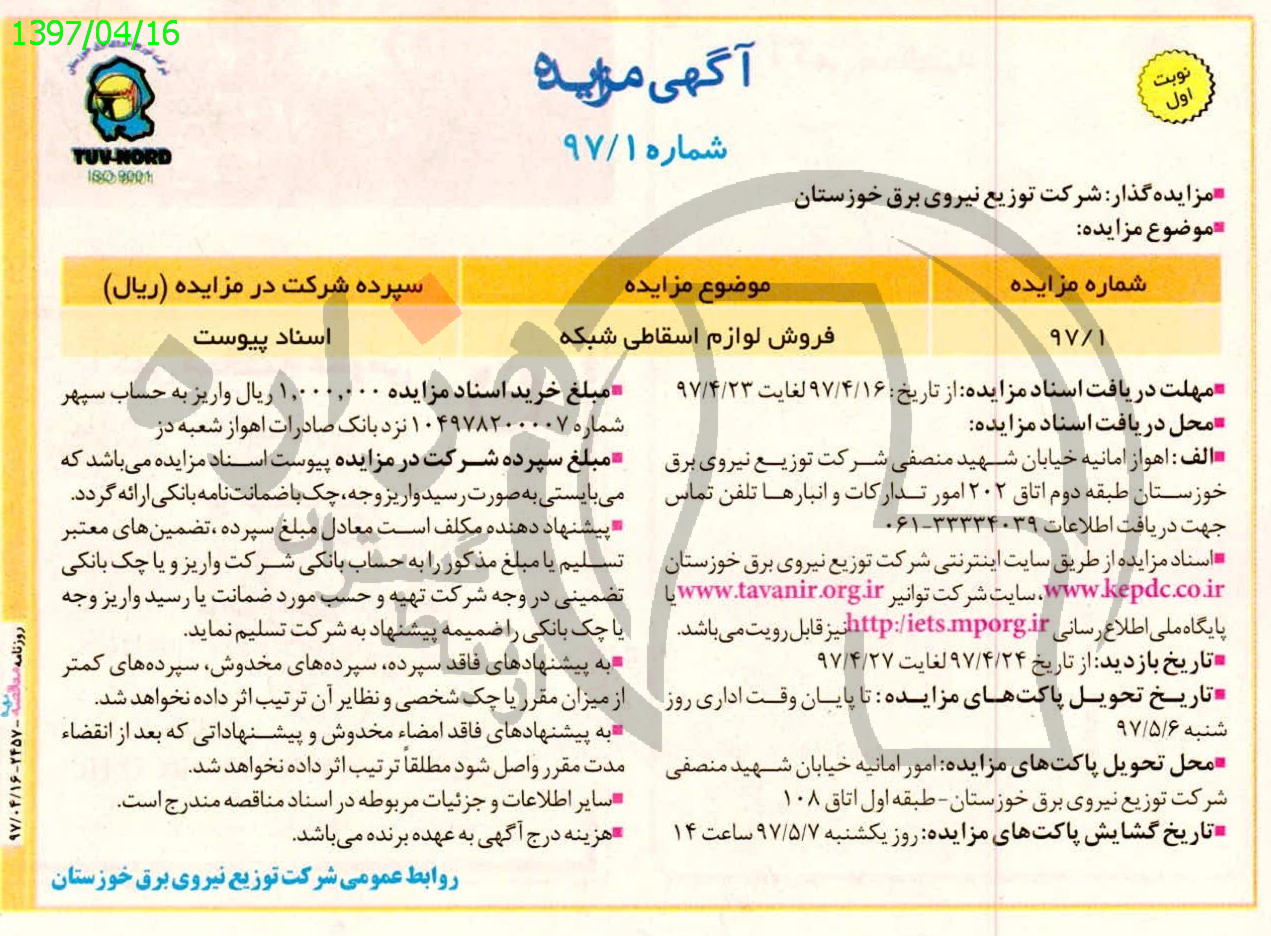 1397/04/16
شرکت توزیع نیروی برق خوزستان
TUV-NORD
ISO 9001
آگهی مزایده
شماره ۹۷/۱
نوبت
اول
مزایده‌گذار: شرکت توزیع نیروی برق خوزستان
موضوع مزایده:
شماره مزایده موضوع مزایده سپرده شرکت در مزایده (ریال)
۹۷/۱ فروش لوازم اسقاطی شبکه اسناد پیوست
مهلت دریافت اسناد مزایده: از تاریخ: ۹۷/۴/۱۶ لغایت ۹۷/۴/۲۳
محل دریافت اسناد مزایده:
الف: اهواز امانیه خیابان شهید منصفی شرکت توزیع نیروی برق
خوزستان طبقه دوم اتاق ۲۰۲ امور تدارکات و انبارها تلفن تماس
جهت دریافت اطلاعات ۳۳۳۳۴۰۳۹-۰۶۱
اسناد مزایده از طریق سایت اینترنتی شرکت توزیع نیروی برق خوزستان
www.kepdc.co.ir، سایت شرکت توانیر www.tavanir.org.ir یا
پایگاه ملی اطلاع رسانی http:/iets.mporg.ir نیز قابل رویت می‌باشد.
تاریخ بازدید: از تاریخ ۹۷/۴/۲۴ لغایت ۹۷/۴/۲۷
تاریخ تحویل پاکت‌های مزایده: تا پایان وقت اداری روز
شنبه ۹۷/۵/۶
محل تحویل پاکت‌های مزایده: امور امانیه خیابان شهید منصفی
شرکت توزیع نیروی برق خوزستان - طبقه اول اتاق ۱۰۸
تاریخ گشایش پاکت‌های مزایده: روز یکشنبه ۹۷/۵/۷ ساعت ۱۴
مبلغ خرید اسناد مزایده ۱,۰۰۰,۰۰۰ ریال واریز به حساب سپهر
شماره ۰۱۰۴۹۷۸۲۰۰۰۰۷ نزد بانک صادرات اهواز شعبه دز
مبلغ سپرده شرکت در مزایده پیوست اسناد مزایده می‌باشد که
می‌بایستی به صورت رسید واریز وجه، چک با ضمانت‌نامه بانکی ارائه گردد.
پیشنهاد دهنده مکلف است معادل مبلغ سپرده ، تضمین‌های معتبر
تسلیم یا مبلغ مذکور را به حساب بانکی شرکت واریز و یا چک بانکی
تضمینی در وجه شرکت تهیه و حسب مورد ضمانت یا رسید واریز وجه
یا چک بانکی را ضمیمه پیشنهاد به شرکت تسلیم نماید.
به پیشنهادهای فاقد سپرده، سپرده‌های مخدوش، سپرده‌های کمتر
از میزان مقرر یا چک شخصی و نظایر آن ترتیب اثر داده نخواهد شد.
به پیشنهادهای فاقد امضاء مخدوش و پیشنهاداتی که بعد از انقضاء
مدت مقرر واصل شود مطلقاً ترتیب اثر داده نخواهد شد.
سایر اطلاعات و جزئیات مربوطه در اسناد مناقصه مندرج است.
هزینه درج آگهی به عهده برنده می‌باشد.
روابط عمومی شرکت توزیع نیروی برق خوزستان
روزنامه مناقصه - ۲۴۵۷ - ۹۷/۰۴/۱۶
هزاره